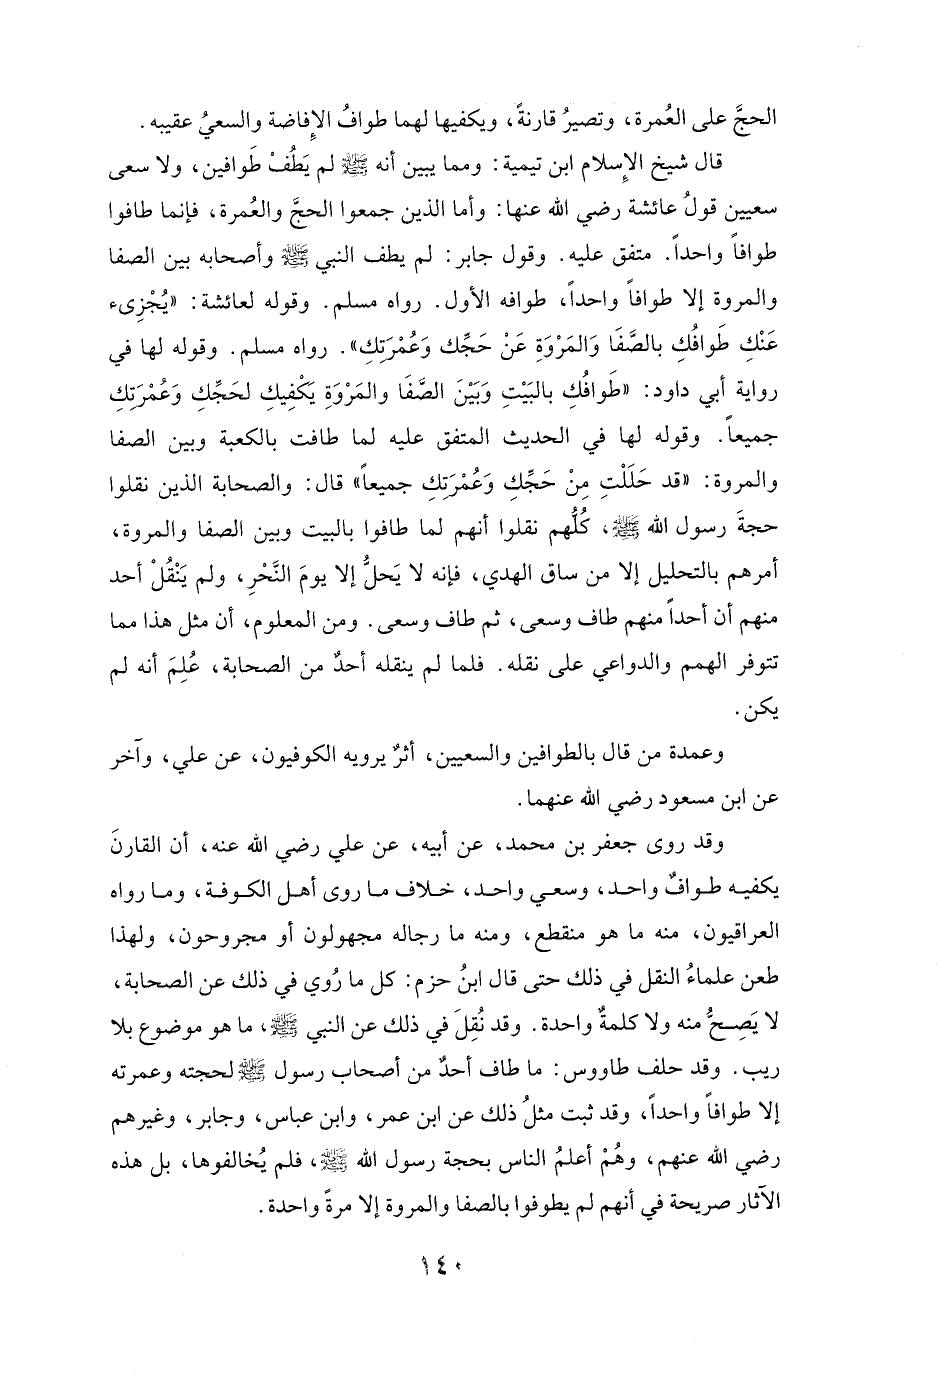 الحجَّ على العُمرة، وتصيرُ قارنةً، ويكفيها لهما طوافُ الإِفاضة والسعيُ عقيبه.
قال شيخ الإِسلام ابن تيمية: ومما يبين أنه ﷺ لم يَطُفْ طَوافين، ولا سعى
سعيين قولُ عائشة رضي الله عنها: وأما الذين جمعوا الحجَّ والعُمرة، فإنما طافوا
طوافاً واحداً. متفق عليه. وقول جابر: لم يطف النبي ﷺ وأصحابه بين الصفا
والمروة إلا طوافاً واحداً، طوافه الأول. رواه مسلم. وقوله لعائشة: «يُجْزِىء
عَنْكِ طَوافُكِ بالصَّفَا وَالمَرْوَةِ عَنْ حَجِّك وَعُمْرَتِكِ». رواه مسلم. وقوله لها في
رواية أبي داود: «طَوافُكِ بالبَيْتِ وَبَيْنَ الصَّفَا والمَرْوَةِ يَكْفِيكِ لحَجِّكِ وَعُمْرَتِكِ
جميعاً. وقوله لها في الحديث المتفق عليه لما طافت بالكعبة وبين الصفا
والمروة: «قد حَلَلْتِ مِنْ حَجِّكِ وَعُمْرَتِكِ جميعاً» قال: والصحابة الذين نقلوا
حجةَ رسول الله ﷺ، كُلُّهم نقلوا أنهم لما طافوا بالبيت وبين الصفا والمروة،
أمرهم بالتحليل إلا من ساق الهدي، فإنه لا يَحلُّ إلا يومَ النَّحْرِ، ولم يَنْقُلْ أحد
منهم أن أحداً منهم طاف وسعى، ثم طاف وسعى. ومن المعلوم، أن مثل هذا مما
تتوفر الهمم والدواعي على نقله. فلما لم ينقله أحدٌ من الصحابة، عُلِمَ أنه لم
يكن.
وعمدة من قال بالطوافين والسعيين، أثرٌ يرويه الكوفيون، عن علي، وآخر
عن ابن مسعود رضي الله عنهما.
وقد روى جعفر بن محمد، عن أبيه، عن علي رضي الله عنه، أن القارنَ
يكفيه طوافٌ واحد، وسعي واحد، خلاف ما روى أهل الكوفة، وما رواه
العراقيون، منه ما هو منقطع، ومنه ما رجاله مجهولون أو مجروحون، ولهذا
طعن علماءُ النقل في ذلك حتى قال ابنُ حزم: كل ما رُوي في ذلك عن الصحابة،
لا يَصِحُّ منه ولا كلمةٌ واحدة. وقد نُقِلَ في ذلك عن النبي ﷺ، ما هو موضوع بلا
ريب. وقد حلف طاووس: ما طاف أحدٌ من أصحاب رسول ﷺ لحجته وعمرته
إلا طوافاً واحداً، وقد ثبت مثلُ ذلك عن ابن عمر، وابن عباس، وجابر، وغيرهم
رضي الله عنهم، وهُمْ أعلمُ الناس بحجة رسول الله ﷺ، فلم يُخالفوها، بل هذه
الآثار صريحة في أنهم لم يطوفوا بالصفا والمروة إلا مرةً واحدة.
١٤٠